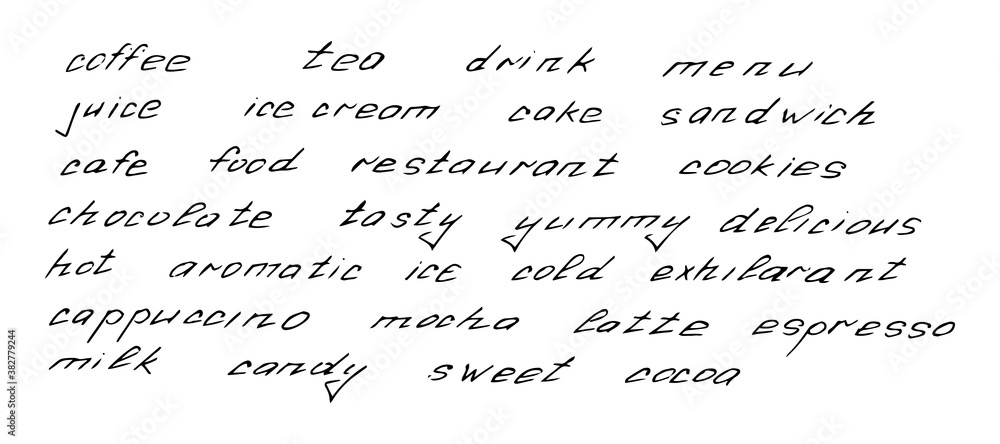 coffee tea drink menu
juice ice cream cake sandwich
cafe food restaurant cookies
chocolate tasty yummy delicious
hot aromatic ice cold exhilarant
cappuccino mocha latte espresso
milk candy sweet cocoa
Adobe Stock | #382779244